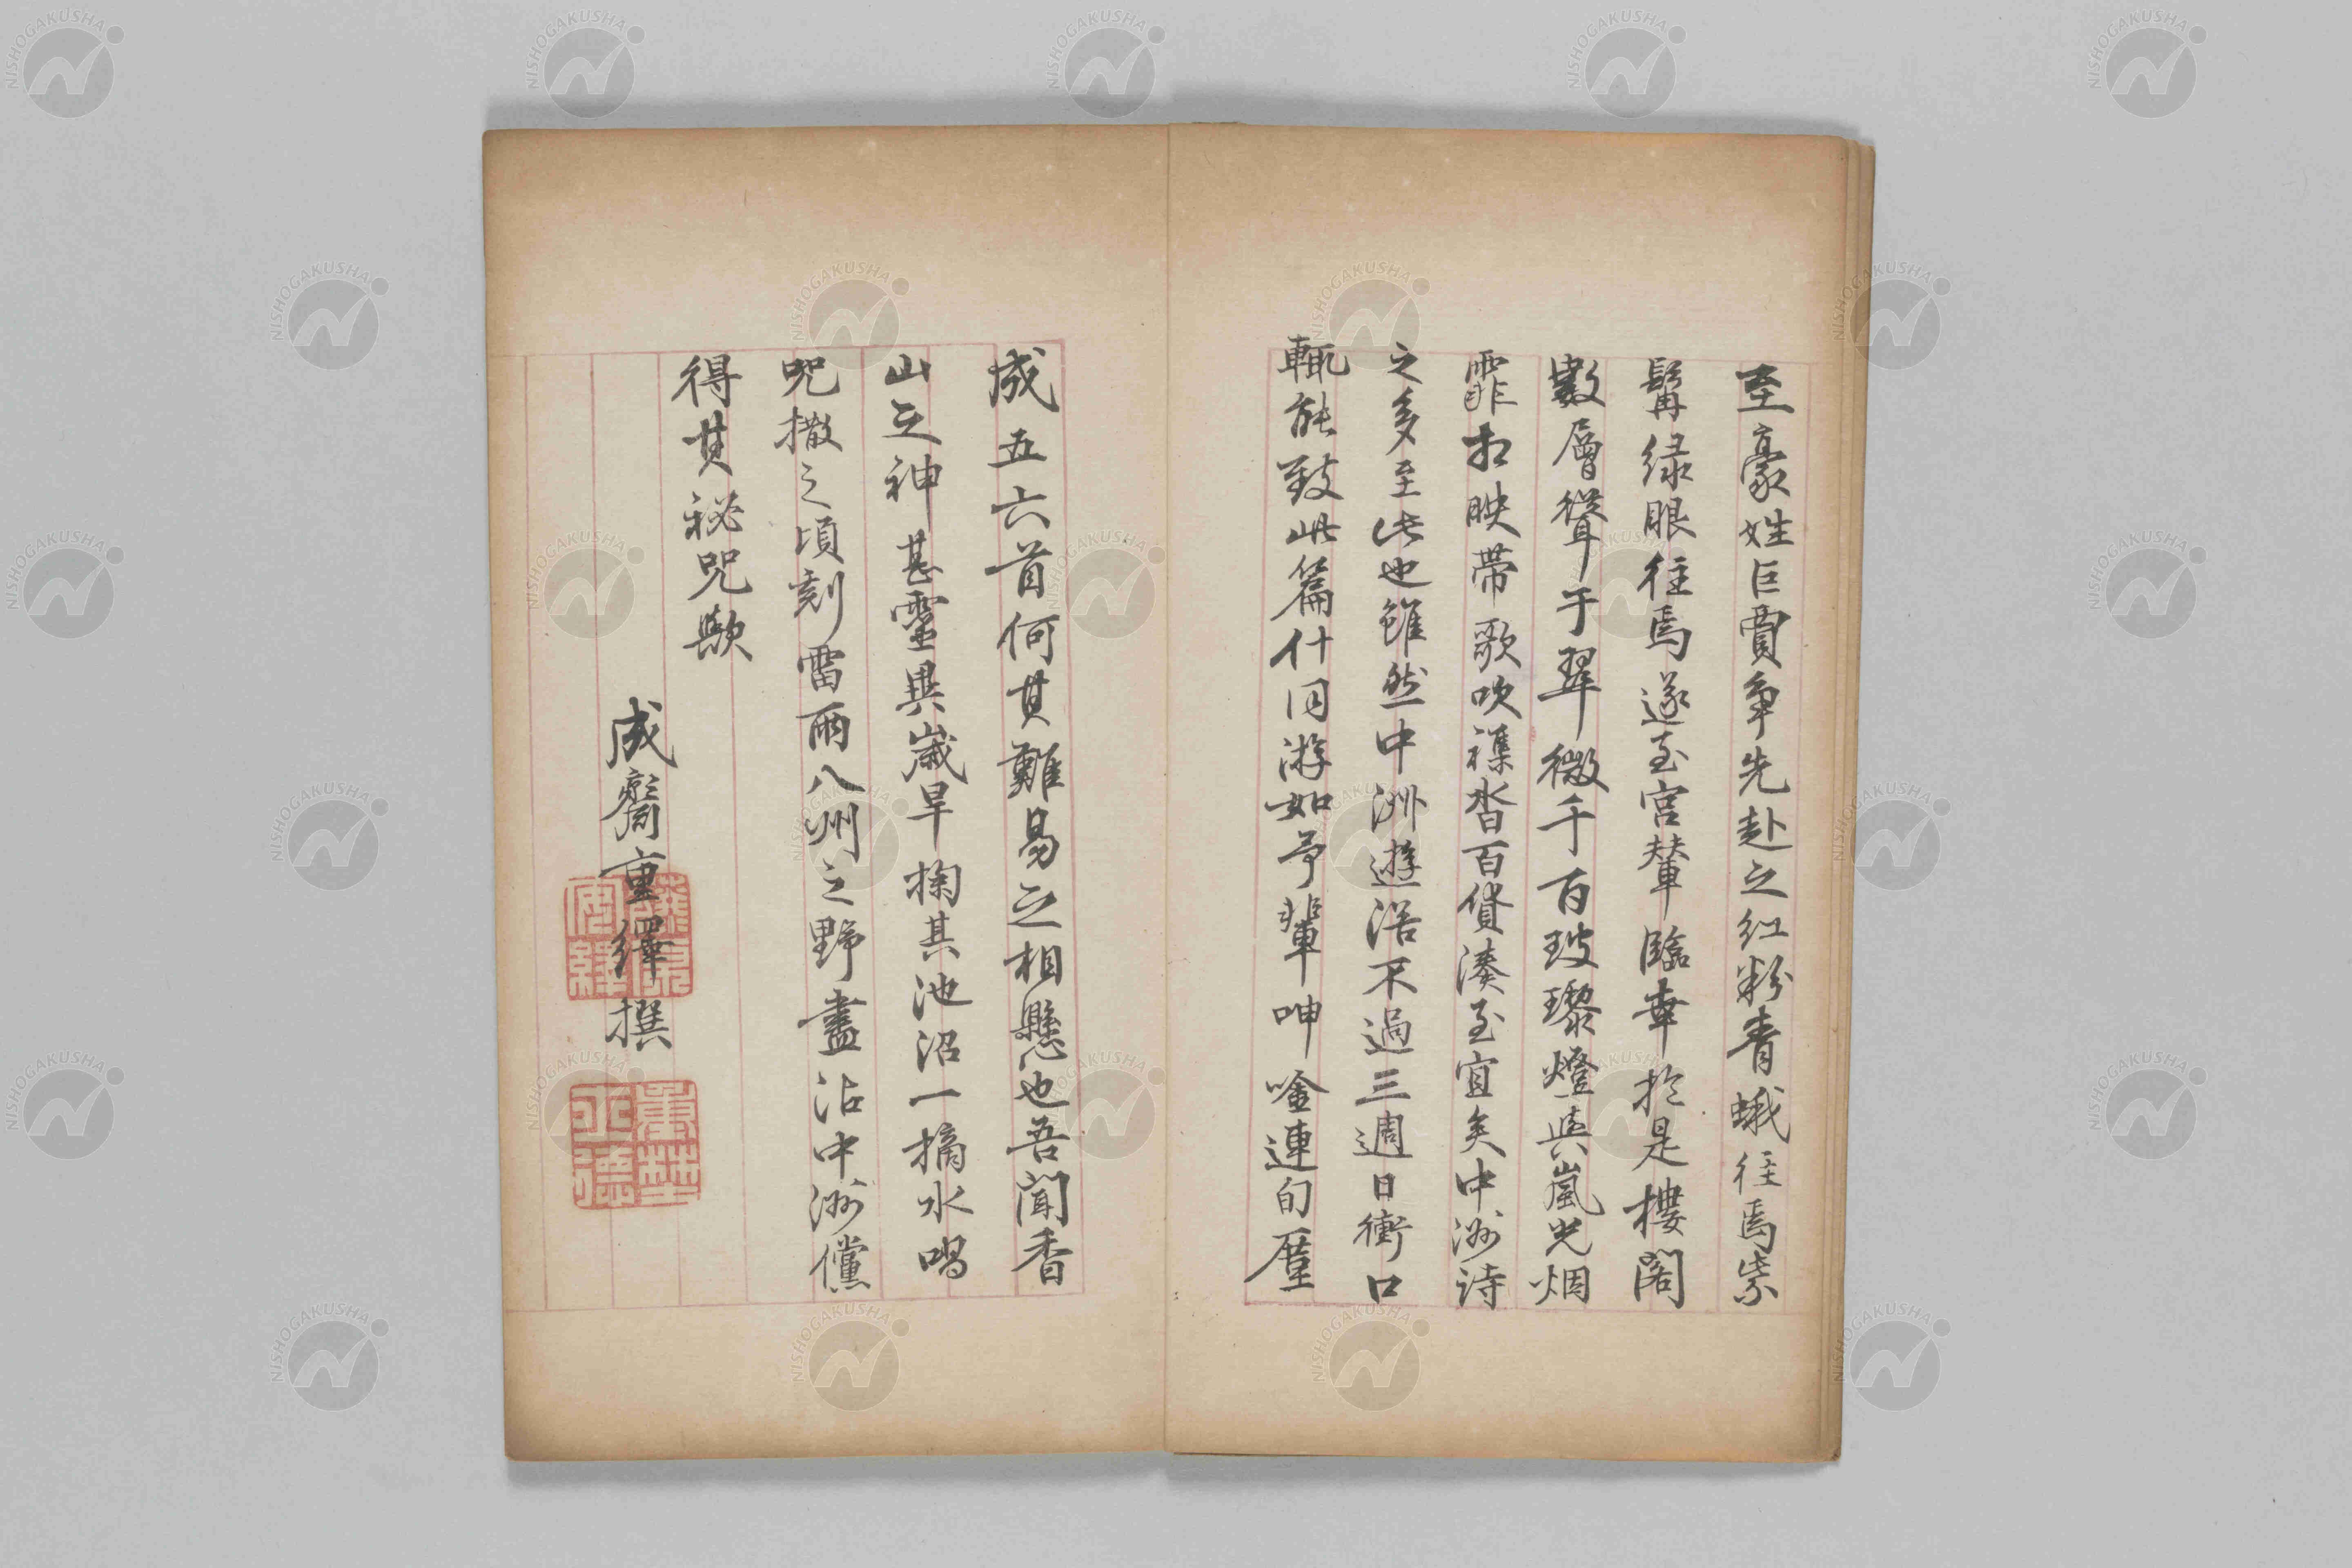 至豪姓巨賈争先赴之紅粉青蛾往焉紫
髯緑眼往焉遂至宮輦臨幸於是樓閣
數層聳于翠微千百玻瓈燈與嵐光烟
霏相映帶歌吹襍沓百貨湊至宜矣中洲詩
之多至此也雖然中洲遊浴不過三週日衝口
輒能致此篇什同游如予輩呻唫連旬廑
成五六首何其難易之相懸也吾聞香
山之神甚靈異歳旱掬其池沼一摘水唱
咒撒之頃刻雷雨八州之野盡沾中洲儻
得其祕咒歟
成齋重繹撰
NISHOGAKUSHA